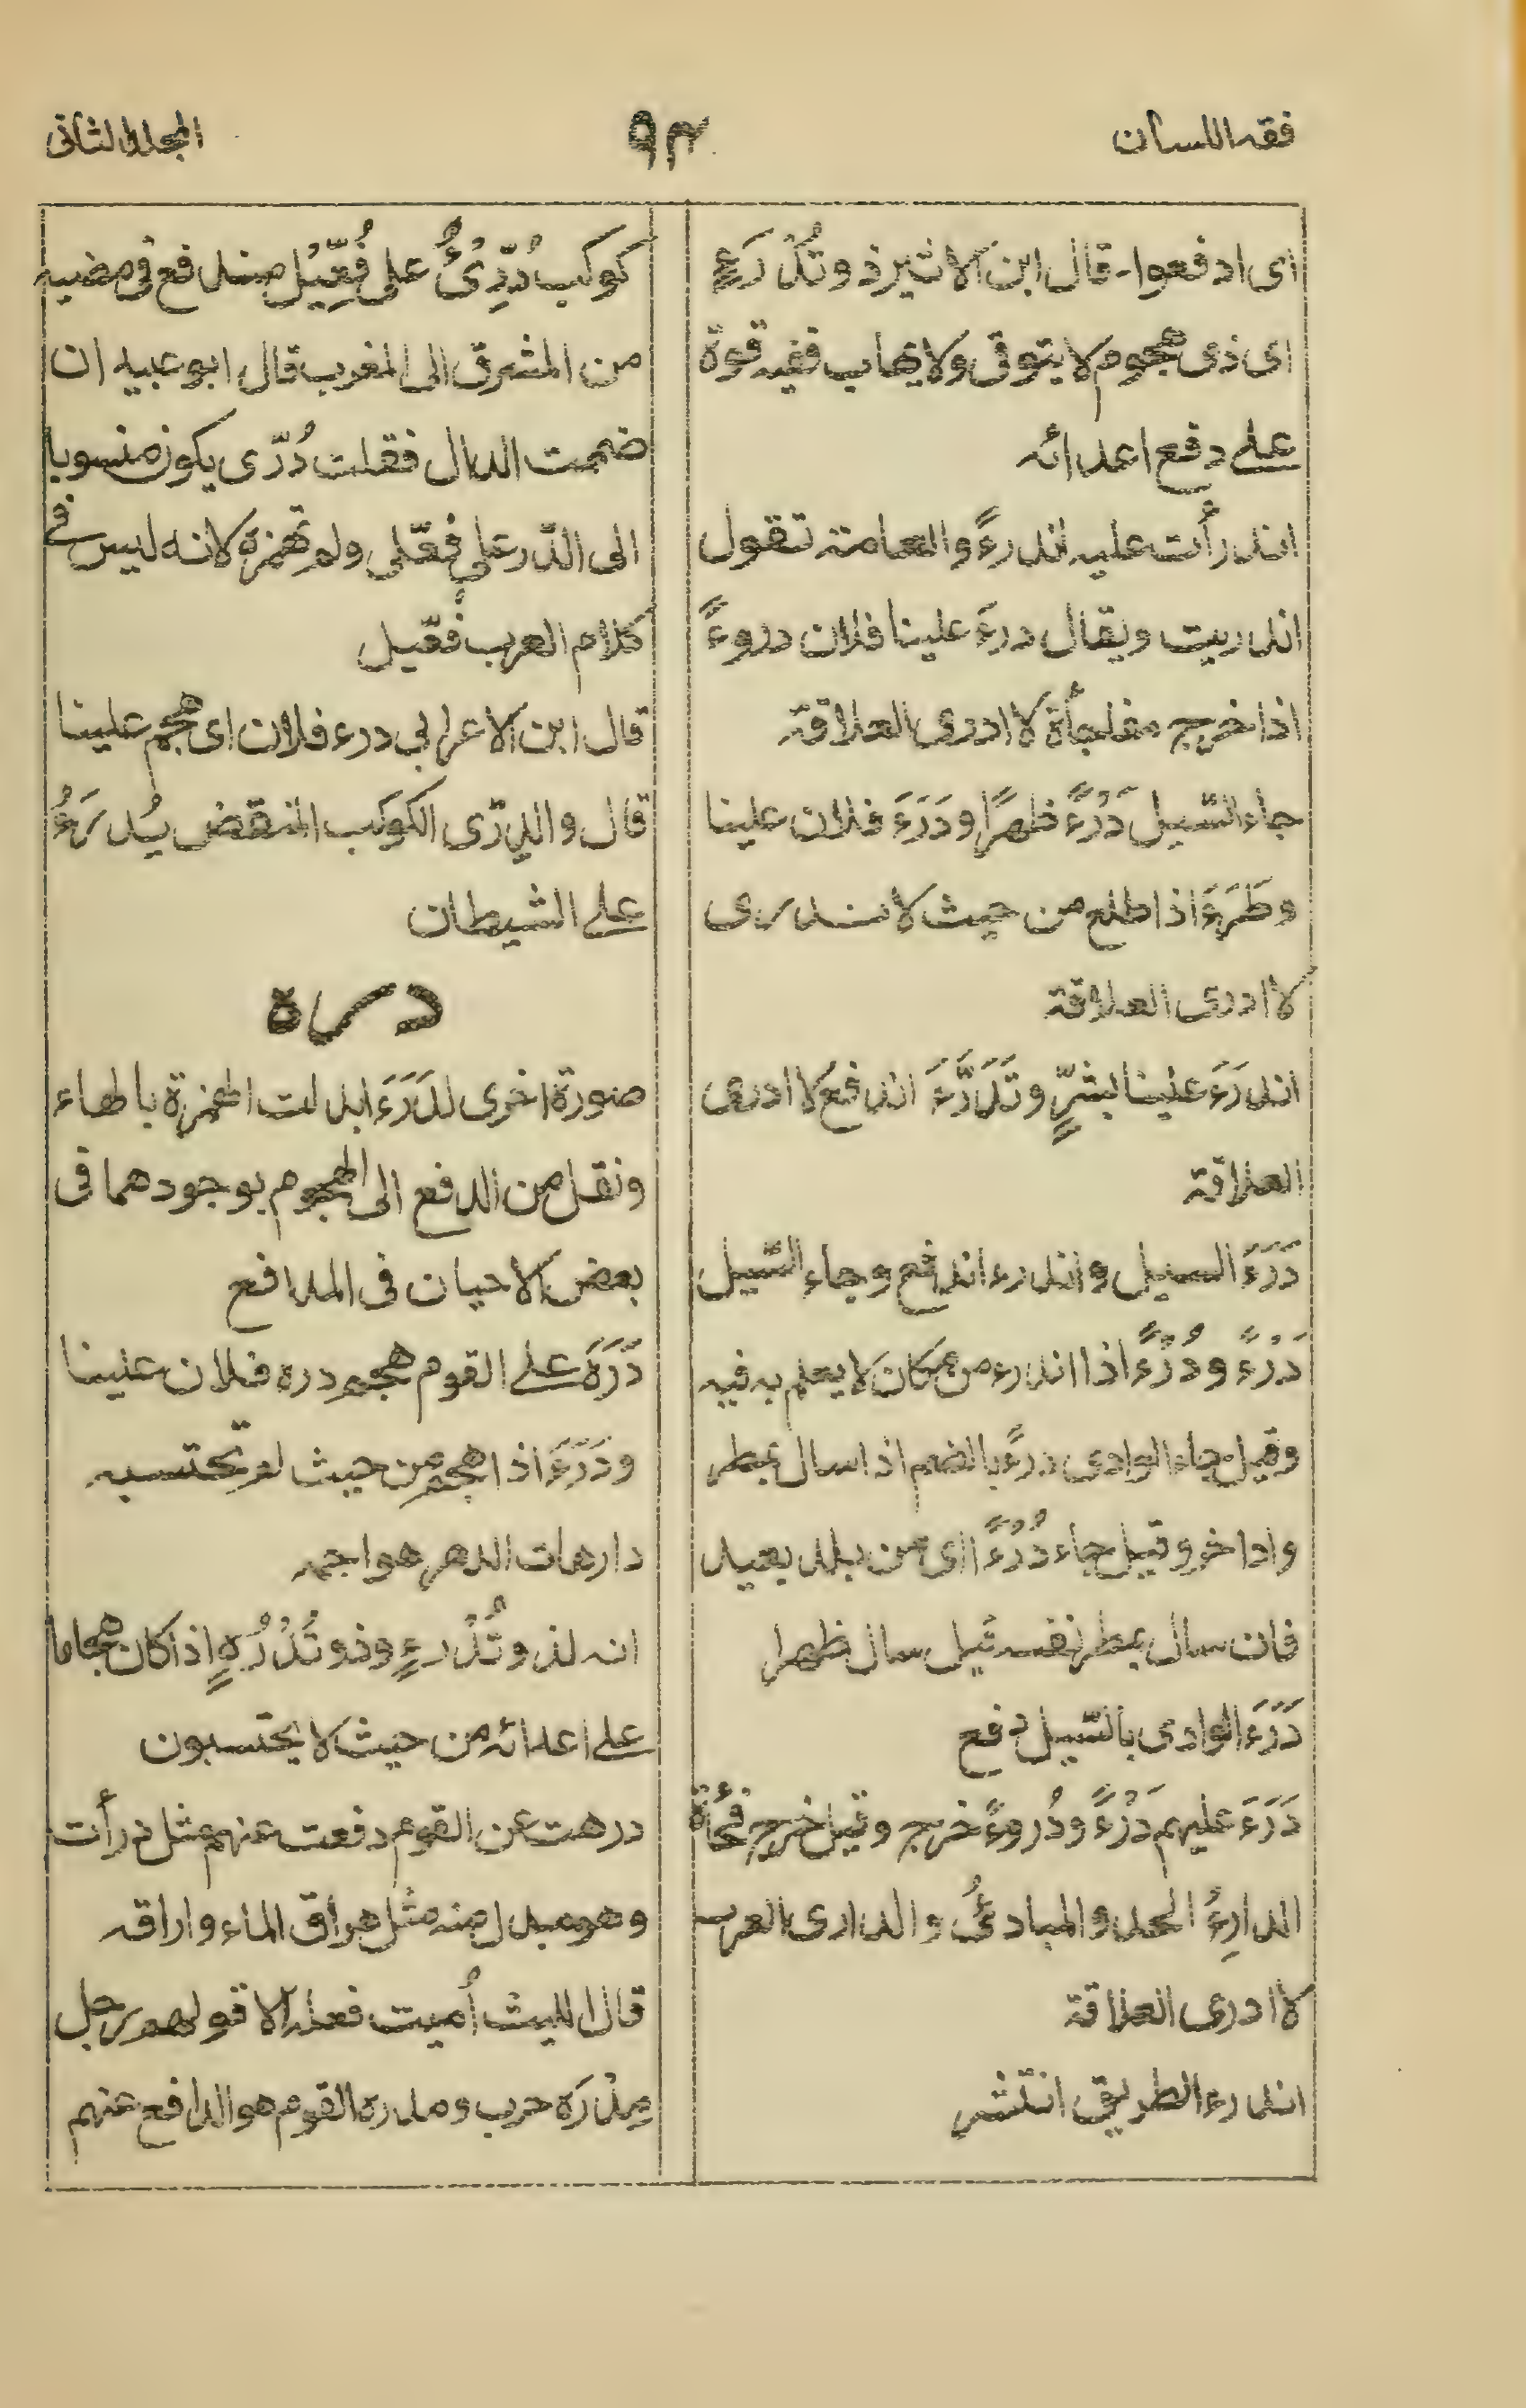 فقه اللسان
٩٣
المجلد الثانى
اى ادفعوا - قال ابن الاثير ذو تُدْرَءٍ
اى ذى هجوم لا يتوقى ولا يهاب ففيه قوة
على دفع اعدائه
اندرأت عليه اندرءً والعامة تقول
اندريت ويقال درءَ علينا فلان دروءً
اذا خرج مفاجأة لا ادرى العلاقة
جاء السّيل دَرْءً ظهرًا ودَرَءَ فلان علينا
وطَرَءَ اذا طلع من حيث لا ندرى
لا ادرى العلاقة
اندَرَءَ علينا بشرٍّ وتَدَرَّءَ اندفع لا ادرى
العلاقة
دَرَءَ السيل واندرء اندفع وجاء السّيل
دَرْءً ودُرْءً اذا اندرء من مكان لا يعلم به فيه
وقيل جاء الوادى درءً بالضم اذا سال بمطر
واد اخر وقيل جاء دُرْءً اى من بلد بعيد
فان سال بمطر نفسه قيل سال ظهرا
دَرَءَ الوادى بالسّيل دفع
دَرَءَ عليهم دَرْءً ودُروءً خرج وقيل خرج فجُأة
الدارِءُ العدو المبادئُ والدارى الغريب
لا ادرى العلاقة
اندرء الطريق انتشر
كوكب دُرِّىْءٌ على فُعِّيْل مندفع فى مضيه
من المشرق الى المغرب قال ابو عبيد ان
ضممت الدال فقلت دُرّى يكون منسوبا
الى الدّر على فُعّلى ولم تهمزه لانه ليس فى
كلام العرب فُعّيل
قال ابن الاعرابي درء فلان اى هجم علينا
قال والدِرّى الكوكب المنقض يُدرَءُ
على الشيطان
دره
صورة اخرى لدَرَءَ ابدلت الهمزة بالهاء
ونقل من الدفع الى الهجوم بوجودهما فى
بعض الاحيان فى المدافع
دَرَهَ على القوم هجم دره فلان علينا
ودَرَءَ اذا هجم من حيث لم تحتسبه
دارهات الدهر هواجمه
انه لذو تُدْرءٍ وذو تُدْرَهٍ اذا كان هجاما
على اعدائه من حيث لا يحتسبون
درهت عن القوم دفعت عنهم مثل درأت
وهو مبدل منه مثل هراق الماء واراقه
قال الليث أُميت فعله الا قولهم رجل
مِدْرَه حرب ومدره القوم هو الدافع عنهم